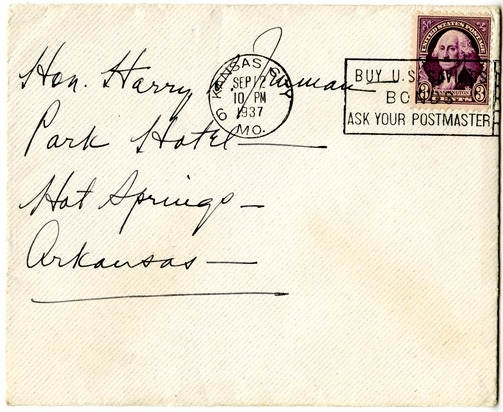 Hon. Harry Truman
Park Hotel—
Hot Springs—
Arkansas—
KANSAS CITY
SEP 12
10 PM
1937
MO.
6
UNITED STATES POSTAGE
3 WASHINGTON 3
BUY U.S. SAVINGS
BONDS
ASK YOUR POSTMASTER